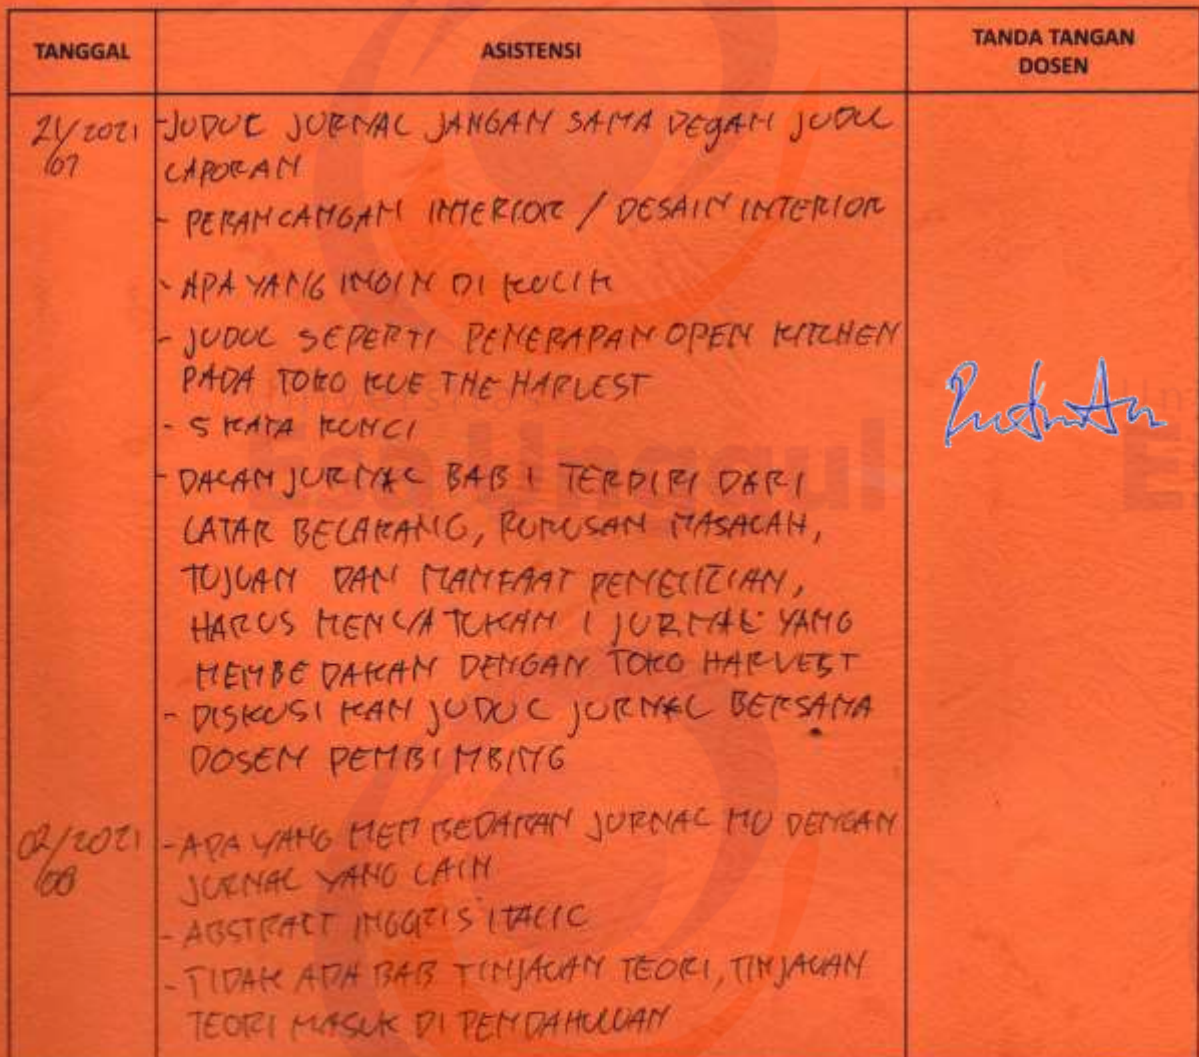 TANGGAL ASISTENSI TANDA TANGAN DOSEN
21/2021 -JUDUL JURNAL JANGAN SAMA DEgAN JUDUL
07 LAPORAN
- PERANCANGAN INTERIOR / DESAIN INTERIOR
- APA YANG INGIN DI KULIK
- JUDUL SEPERTI PENERAPAN OPEN KITCHEN
PADA TOKO KUE THE HARVEST
- 5 KATA KUNCI
Esa Unggul
- DALAM JURNAL BAB 1 TERDIRI DARI
LATAR BELAKANG, RUMUSAN MASALAH,
TUJUAN DAN MANFAAT PENELITIAN,
HARUS MENYATUKAN 1 JURNAL YANG
MEMBEDAKAN DENGAN TOKO HARVEST
- DISKUSIKAN JUDUL JURNAL BERSAMA
DOSEN PEMBIMBING
02/2021 - APA YANG MEMBEDAKAN JURNAL MU DENGAN
08 JURNAL YANG LAIN
- ABSTRACT INGGRIS ITALIC
- TIDAK ADA BAB TINJAUAN TEORI, TINJAUAN
TEORI MASUK DI PENDAHULUAN